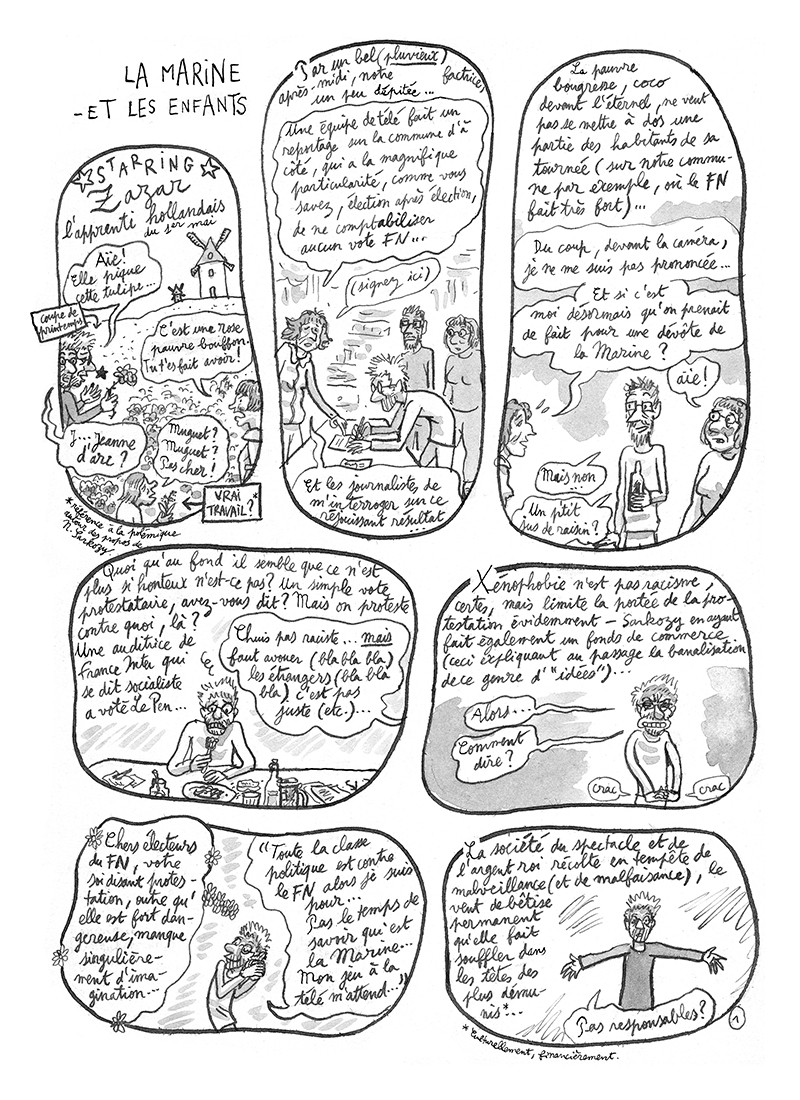 LA MARINE
-ET LES ENFANTS
STARRING
Zazar
l'apprenti hollandais
du 1er mai
Aïe!
Elle pique
cette tulipe...
Coupe de
printemps
C'est une rose
pauvre bouffon.
Tu t'es fait avoir!
J... Jeanne
d'arc?
Muguet?
Muguet?
Pas cher!
VRAI
TRAVAIL?*
*Référence à la polémique
autour des propos de
N. Sarkozy.
Par un bel (pluvieux)
après-midi, notre factrice,
un peu dépitée...
Une équipe de télé fait un
reportage sur la commune d'à
côté, qui a la magnifique
particularité, comme vous
savez, élection après élection,
de ne comptabiliser
aucun vote FN...
(signez ici)
Et les journalistes de
m'interroger sur ce
réjouissant résultat
La pauvre
bougresse, coco
devant l'éternel, ne veut
pas se mettre à dos une
partie des habitants de sa
tournée (sur notre commu-
ne par exemple, où le FN
fait très fort)...
Du coup, devant la caméra,
je ne me suis pas prononcée...
Et si c'est
moi désormais qu'on prenait
de fait pour une dévôte de
la Marine?
aïe!
Mais non...
Un p'tit
jus de raisin?
Quoi qu'au fond il semble que ce n'est
plus si honteux n'est-ce pas? Un simple vote
protestataire, avez-vous dit? Mais on proteste
contre quoi, là?
Une auditrice de
France Inter qui
se dit socialiste
a voté Le Pen...
Chuis pas raciste... mais
faut avouer (bla bla bla)
les étrangers (bla bla
bla) c'est pas
juste (etc.)...
Xénophobie n'est pas racisme,
certes, mais limite la portée de la pro-
testation évidemment - Sarkozy en ayant
fait également un fonds de commerce
(ceci expliquant au passage la banalisation
de ce genre d'"idées")...
Alors...
Comment
dire?
crac
crac
Chers électeurs
du FN, votre
soi disant protes-
tation, outre qu'
elle est fort dan-
gereuse, manque
singulière-
ment d'ima-
gination...
"Toute la classe
politique est contre
le FN alors je suis
pour...
Pas le temps de
savoir qui est
la Marine...
Mon jeu à la
télé m'attend..."
La société du spectacle et de
l'argent roi récolte en tempête de
malveillance (et de malfaisance), le
vent de bêtise
permanent
qu'elle fait
souffler dans
les têtes des
plus dému-
nis*...
Pas responsables?
1
*Culturellement, financièrement.